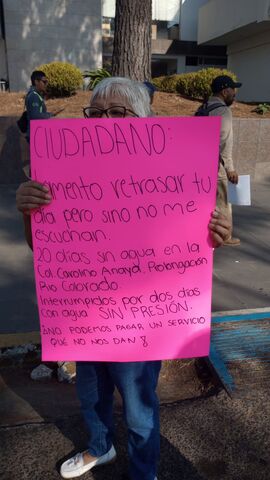 CIUDADANO:
Lamento retrasar tu
día pero sino no me
escuchan.
20 días sin agua en la
Col. Carolino Anaya. Prolongación
Río Colorado.
Interrumpidos por dos días
con agua SIN PRESIÓN.
¡NO PODEMOS PAGAR UN SERVICIO
QUE NO NOS DAN!